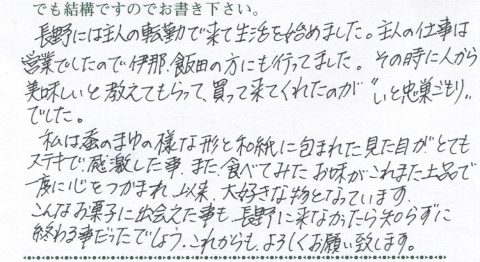 でも結構ですのでお書き下さい。
長野には主人の転勤で来て生活を始めました。主人の仕事は
営業でしたので伊那、飯田の方にも行ってました。その時に人から
美味しいと教えてもらって、買って来てくれたのが“いと忠巣ごもり”
でした。
私は蚕のまゆの様な形と和紙に包まれた見た目がとても
ステキで、感激した事、また、食べてみたお味がこれまた上品で
一度に心をつかまれ、以来、大好きな物となっています。
こんなお菓子に出会えた事も、長野に来なかったら知らずに
終わる事だったでしょう。これからも、よろしくお願い致します。